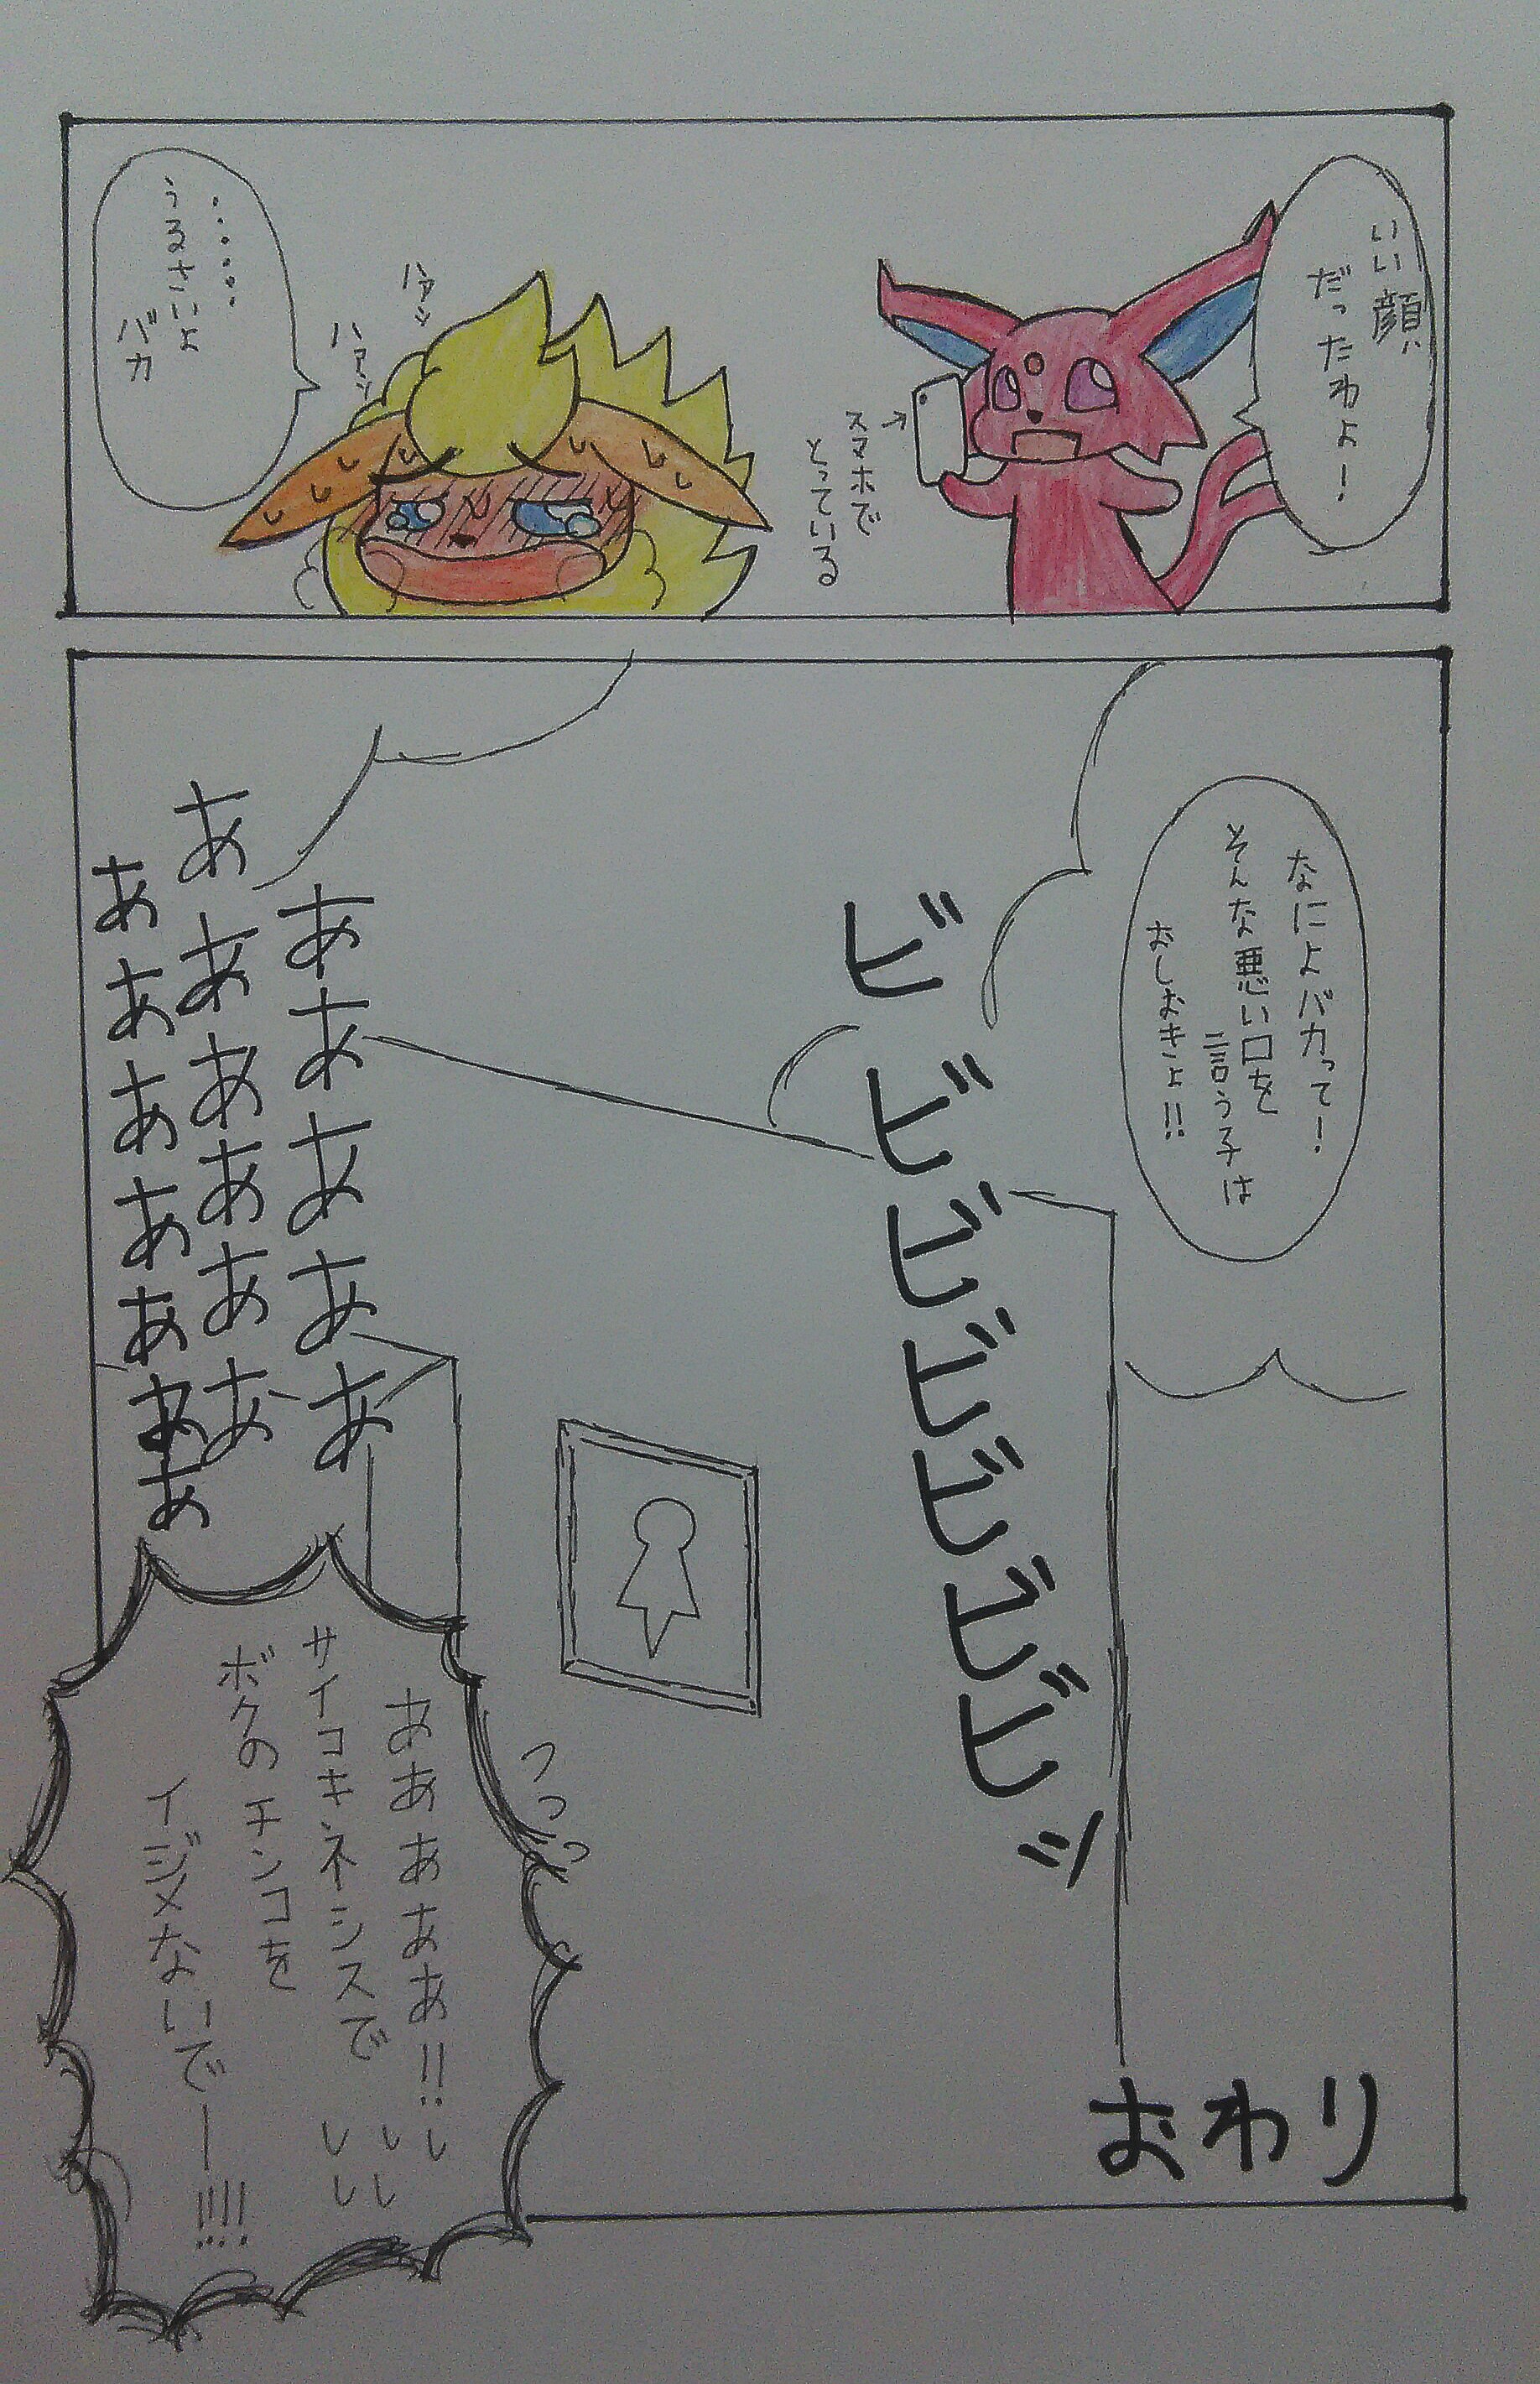 いい顔
だったわよ！
スマホで
とっている
ハァッ
ハァッ
……
うるさいよ
バカ
なによバカって！
そんな悪い口を
言う子は
おしおきよ!!
ビビビビビビビッ
あああああ
ああああああ
あああああああ
ああああぁ!!
サイコキネシスで
ボクのチンコを
イジメないでー!!!!
おわり